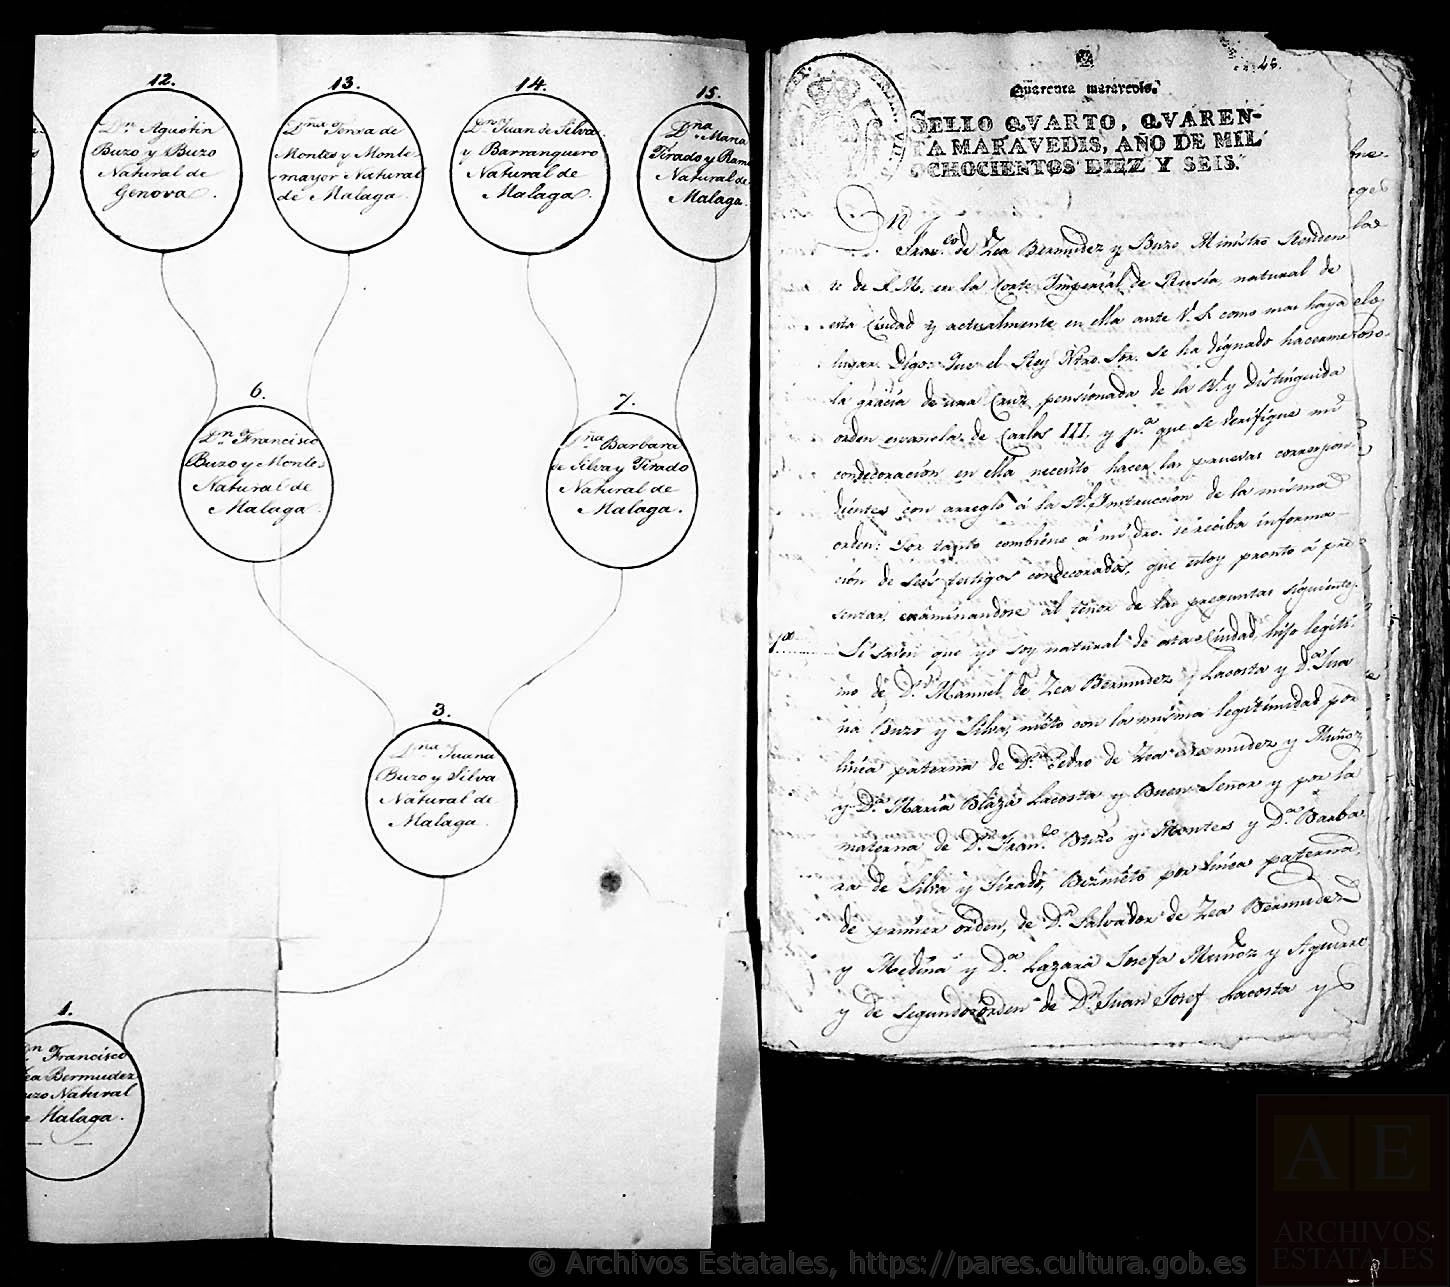 12.
Dn. Agustin
Buzo y Buzo
Natural de
Genova.
13.
Dña Teresa de
Montes y Monte-
mayor Natural
de Malaga.
14.
Dn. Juan de Silva
y Barranquero
Natural de
Malaga.
15.
Dña Maria
Tirado y Ram
Natural de
Malaga
6.
Dn. Francisco
Buzo y Montes
Natural de
Malaga.
7.
Dña Barbara
de Silva y Tirado
Natural de
Malaga.
3.
Dna. Juana
Buzo y Silva
Natural de
Malaga.
1.
Dn Francisco
Zea Bermudez
uzo Natural
e Malaga.
46.
Quarenta maravedis.
SELLO QVARTO, QVAREN-
TA MARAVEDIS, AÑO DE MIL
OCHOCIENTOS DIEZ Y SEIS.
Dn
Franco. de Zea Bermudez y Buzo Ministro Residen
te de S. M. en la Corte Imperial de Rusia, natural de
esta Ciudad y actualmente en ella ante V. S. como mas haya
lugar Digo: Que el Rey Ntro. Sor. se ha dignado hacerme
la gracia de una Cruz pensionada de la Rl. y Distinguida
orden española de Carlos III. y pa. que se verifique mi
condecoracion en ella necesito hacer las pruevas correspon
dientes con arreglo á la Rl. Instruccion de la misma
orden: Por tanto combiene á mi dro. se reciba informa-
cion de seis testigos condecorados, que estoy pronto á pre
sentar, examinandose al tenor de las preguntas siguientes.
1a. Si saven que yo soy natural de esta Ciudad, hijo legiti-
mo de Dn. Manuel de Zea Bermudez y Lacosta y Da. Jua
na Buzo y Silva, nieto con la misma legitimidad por
linea paterna de Dn. Pedro de Zea Bermudez y Muñoz,
y Da. Maria Blaza Lacosta y Buen Señor y por la
materna de Dn. Franco. Buzo y Montes y Da. Barba
ra de Silva y Tirado, Biznieto por linea paterna,
de primer orden, de Dn. Salvador de Zea Bermudez
y Medina y Da. Lazara Josefa Muñoz y Aguirre
y de segundo orden de Dn. Juan Josef Lacosta y
© Archivos Estatales, https://pares.cultura.gob.es
AE
ARCHIVOS
ESTATALES